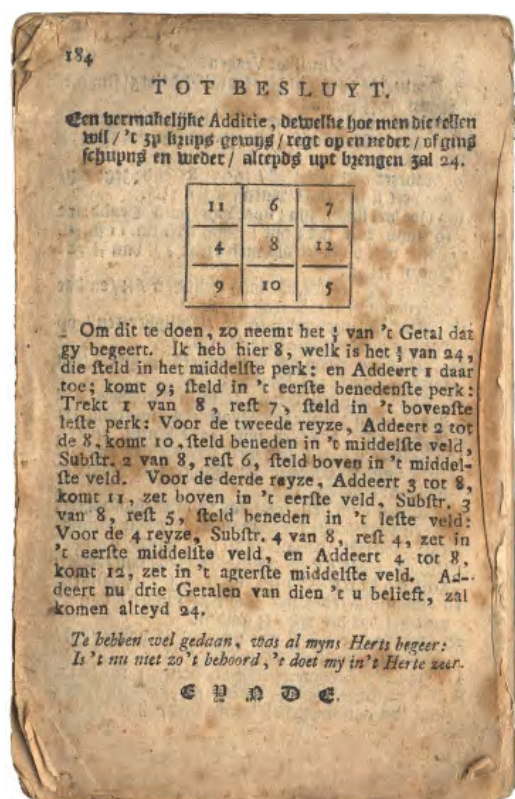 184
TOT BESLUYT.
Een vermakelijke Additie, dewelke hoe men die tellen
wil / 't zp kruys gewijs / regt op en neder / of ging
schuyns en weder / alteyds uyt brengen zal 24.
11 6 7
4 8 12
9 10 5
Om dit te doen, zo neemt het ⅓ van 't Getal dat
gy begeert. Ik heb hier 8, welk is het ⅓ van 24,
die steld in het middelste perk: en Addeert 1 daar
toe; komt 9; steld in 't eerste benedenste perk:
Trekt 1 van 8, rest 7, steld in 't bovenste
leste perk: Voor de tweede reyze, Addeert 2 tot
de 8, komt 10, steld beneden in 't middelste veld,
Substr. 2 van 8, rest 6, steld boven in 't middel-
ste veld. Voor de derde reyze, Addeert 3 tot 8,
komt 11, zet boven in 't eerste veld, Substr. 3
van 8, rest 5, steld beneden in 't leste veld:
Voor de 4 reyze, Substr. 4 van 8, rest 4, zet in
't eerste middelste veld, en Addeert 4 tot 8,
komt 12, zet in 't agterste middelste veld. Ad-
deert nu drie Getalen van dien 't u belieft, zal
komen alteyd 24.
Te hebben wel gedaan, was al myns Herts begeer:
Is 't nu niet zo 't behoord, 't doet my in 't Herte zeer.
EYNDE.